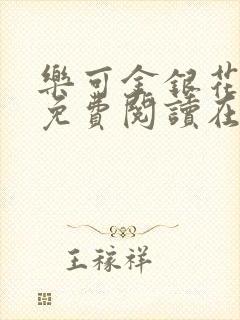 樂可金銀花
免費閱讀在
王稼祥